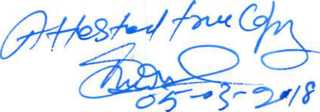 Attested true Copy
05-03-2018